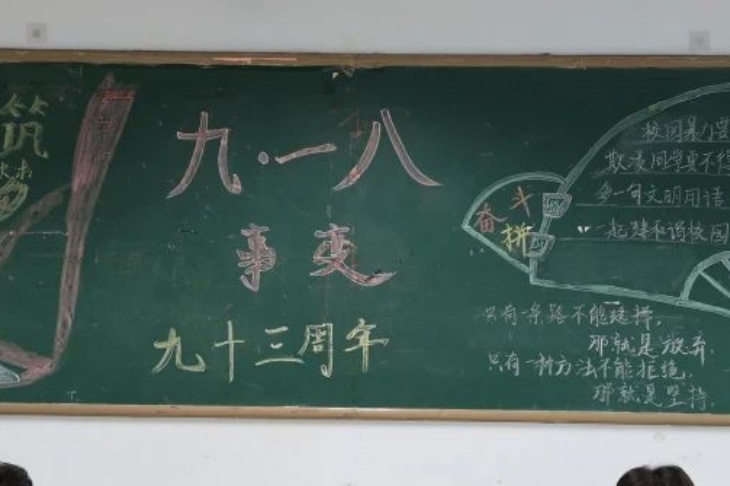 筑
九·一八
事变
九十三周年
奋斗
拼
校园暴力要
欺凌同学要不得
多一句文明用语
一起建和谐校园
只有一条路不能选择，
那就是放弃.
只有一种方法不能拒绝，
那就是坚持.